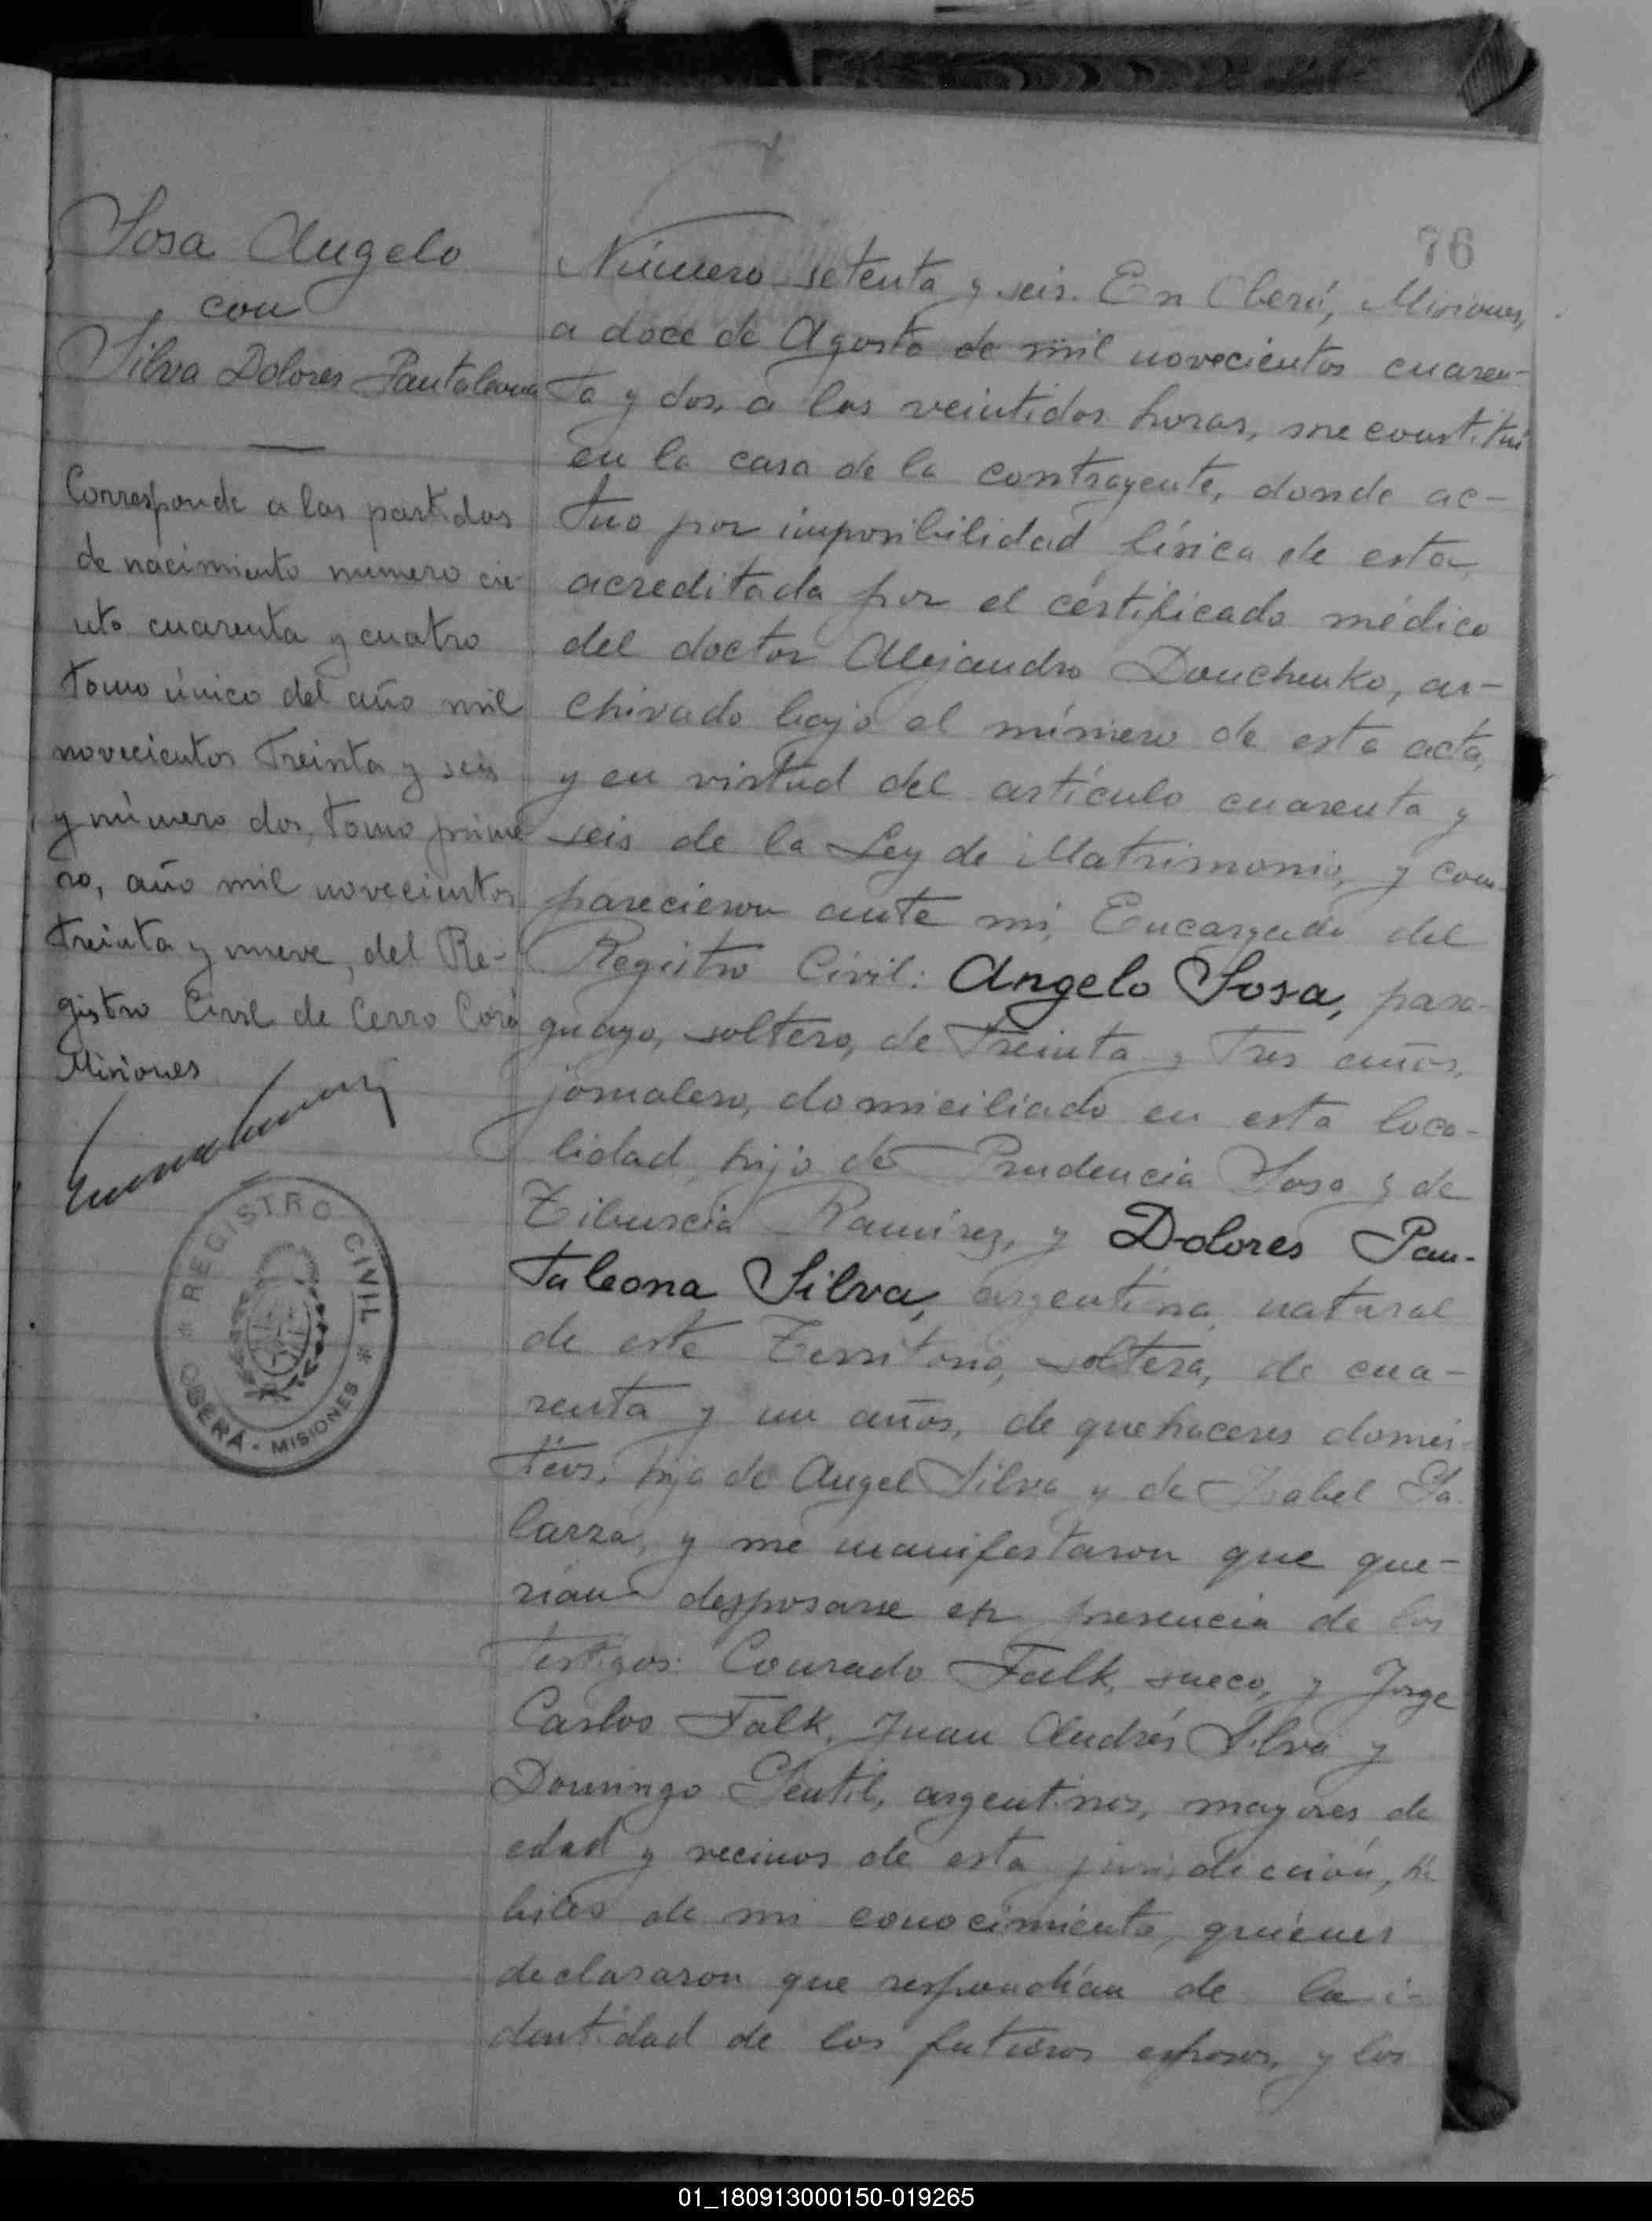 76
Sosa Angelo
con
Silva Dolores Pantaleona
Corresponde a las partidas
de nacimiento número cie-
nto cuarenta y cuatro
tomo único del año mil
novecientos treinta y seis
y número dos, tomo prime
ro, año mil novecientos
treinta y nueve, del Re-
gistro Civil de Cerro Corá
Misiones
REGISTRO CIVIL
OBERÁ - MISIONES
Número setenta y seis. En Oberá, Misiones,
a doce de Agosto de mil novecientos cuaren-
ta y dos, a las veintidos horas, me constituí
en la casa de la contrayente, donde ac-
tuo por imposibilidad física de esta,
acreditada por el certificado médico
del doctor Alejandro Donchenko, ar-
chivado bajo el número de esta acta,
y en virtud del artículo cuarenta y
seis de la Ley de Matrimonio, y com-
parecieron ante mi, Encargado del
Registro Civil: Angelo Sosa, para-
guayo, soltero, de treinta y tres años,
jornalero, domiciliado en esta loca-
lidad, hijo de Prudencia Sosa y de
Tiburcia Ramírez, y Dolores Pan-
taleona Silva, argentina, natural
de este Territorio, soltera, de cua-
renta y un años, de quehaceres domés-
ticos, hija de Angel Silva y de Isabel Ga-
larza, y me manifestaron que que-
rían desposarse en presencia de los
testigos: Conrado Falk, sueco, y Jorge
Carlos Falk, Juan Andrés Silva y
Domingo Gentil, argentinos, mayores de
edad y vecinos de esta jurisdicción, há
biles de mi conocimiento, quienes
declararon que respondían de la i-
dentidad de los futuros esposos, y los
01_180913000150-019265